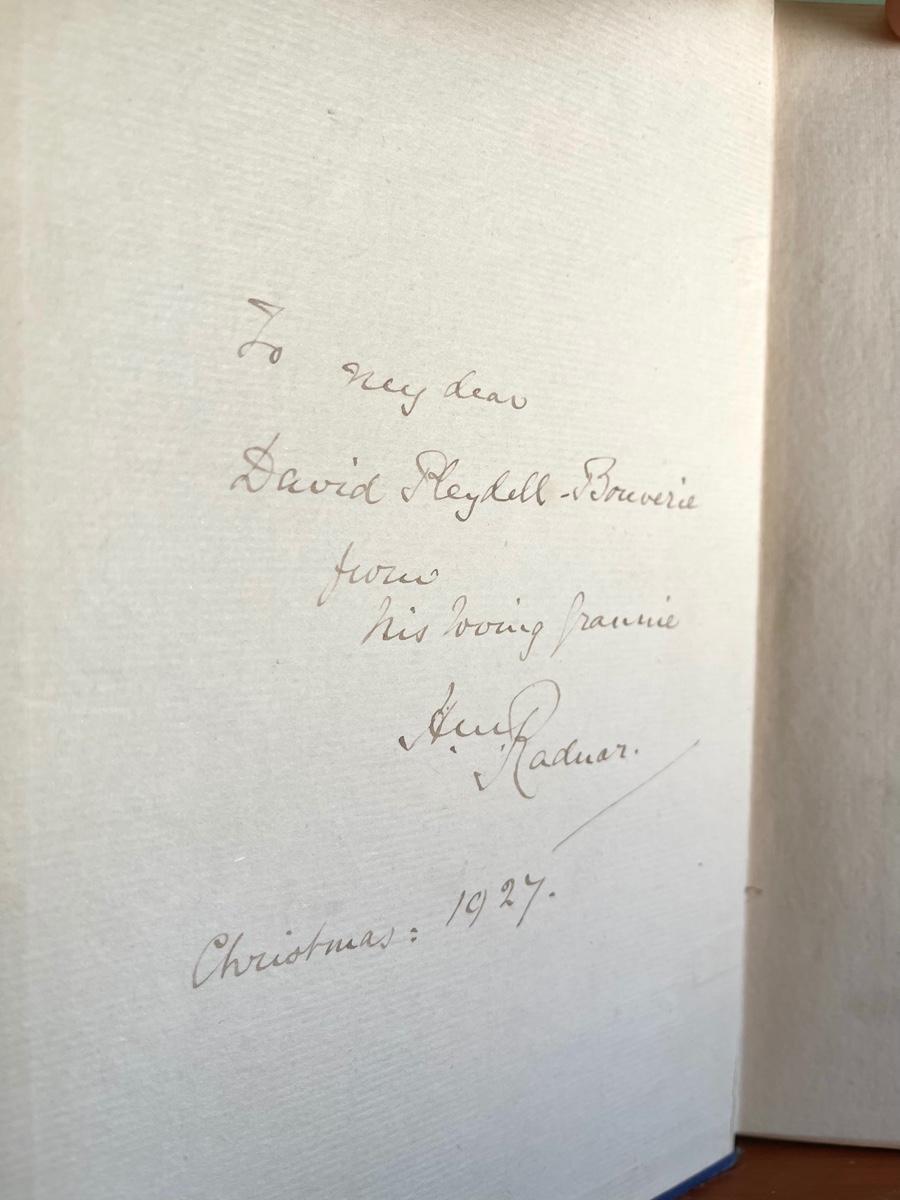 To my dear
David Pleydell-Bouverie
from
his loving Grannie
H.M. Radnor.
Christmas: 1927.